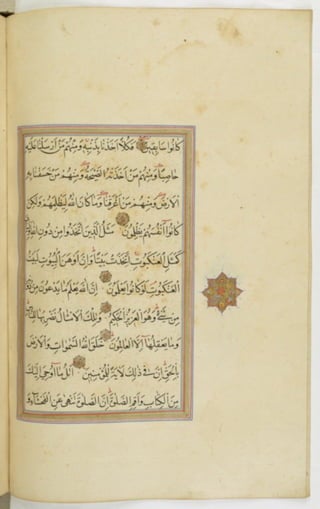 كَانُوا سَابِقِينَ فَكُلًّا أَخَذْنَا بِذَنْبِهِ وَمِنْهُمْ مَنْ أَرْسَلْنَا عَلَيْهِ
حَاصِبًا وَمِنْهُمْ مَنْ أَخَذَتْهُ الصَّيْحَةُ وَمِنْهُمْ مَنْ خَسَفْنَا بِهِ
الْأَرْضَ وَمِنْهُمْ مَنْ أَغْرَقْنَا وَمَا كَانَ اللَّهُ لِيَظْلِمَهُمْ وَلَكِنْ
كَانُوا أَنْفُسَهُمْ يَظْلِمُونَ مَثَلُ الَّذِينَ اتَّخَذُوا مِنْ دُونِ اللَّهِ أَوْلِيَاءَ
كَمَثَلِ الْعَنْكَبُوتِ اتَّخَذَتْ بَيْتًا وَإِنَّ أَوْهَنَ الْبُيُوتِ لَبَيْتُ
الْعَنْكَبُوتِ لَوْ كَانُوا يَعْلَمُونَ إِنَّ اللَّهَ يَعْلَمُ مَا يَدْعُونَ مِنْ دُونِهِ
مِنْ شَيْءٍ وَهُوَ الْعَزِيزُ الْحَكِيمُ وَتِلْكَ الْأَمْثَالُ نَضْرِبُهَا لِلنَّاسِ
وَمَا يَعْقِلُهَا إِلَّا الْعَالِمُونَ خَلَقَ اللَّهُ السَّمَوَاتِ وَالْأَرْضَ
بِالْحَقِّ إِنَّ فِي ذَلِكَ لَآيَةً لِلْمُؤْمِنِينَ اتْلُ مَا أُوحِيَ إِلَيْكَ
مِنَ الْكِتَابِ وَأَقِمِ الصَّلَوةَ إِنَّ الصَّلَوةَ تَنْهَى عَنِ الْفَحْشَاءِ وَ